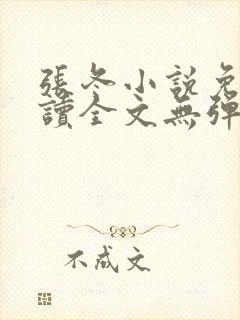 張冬小說免
讀全文無彈
不成文